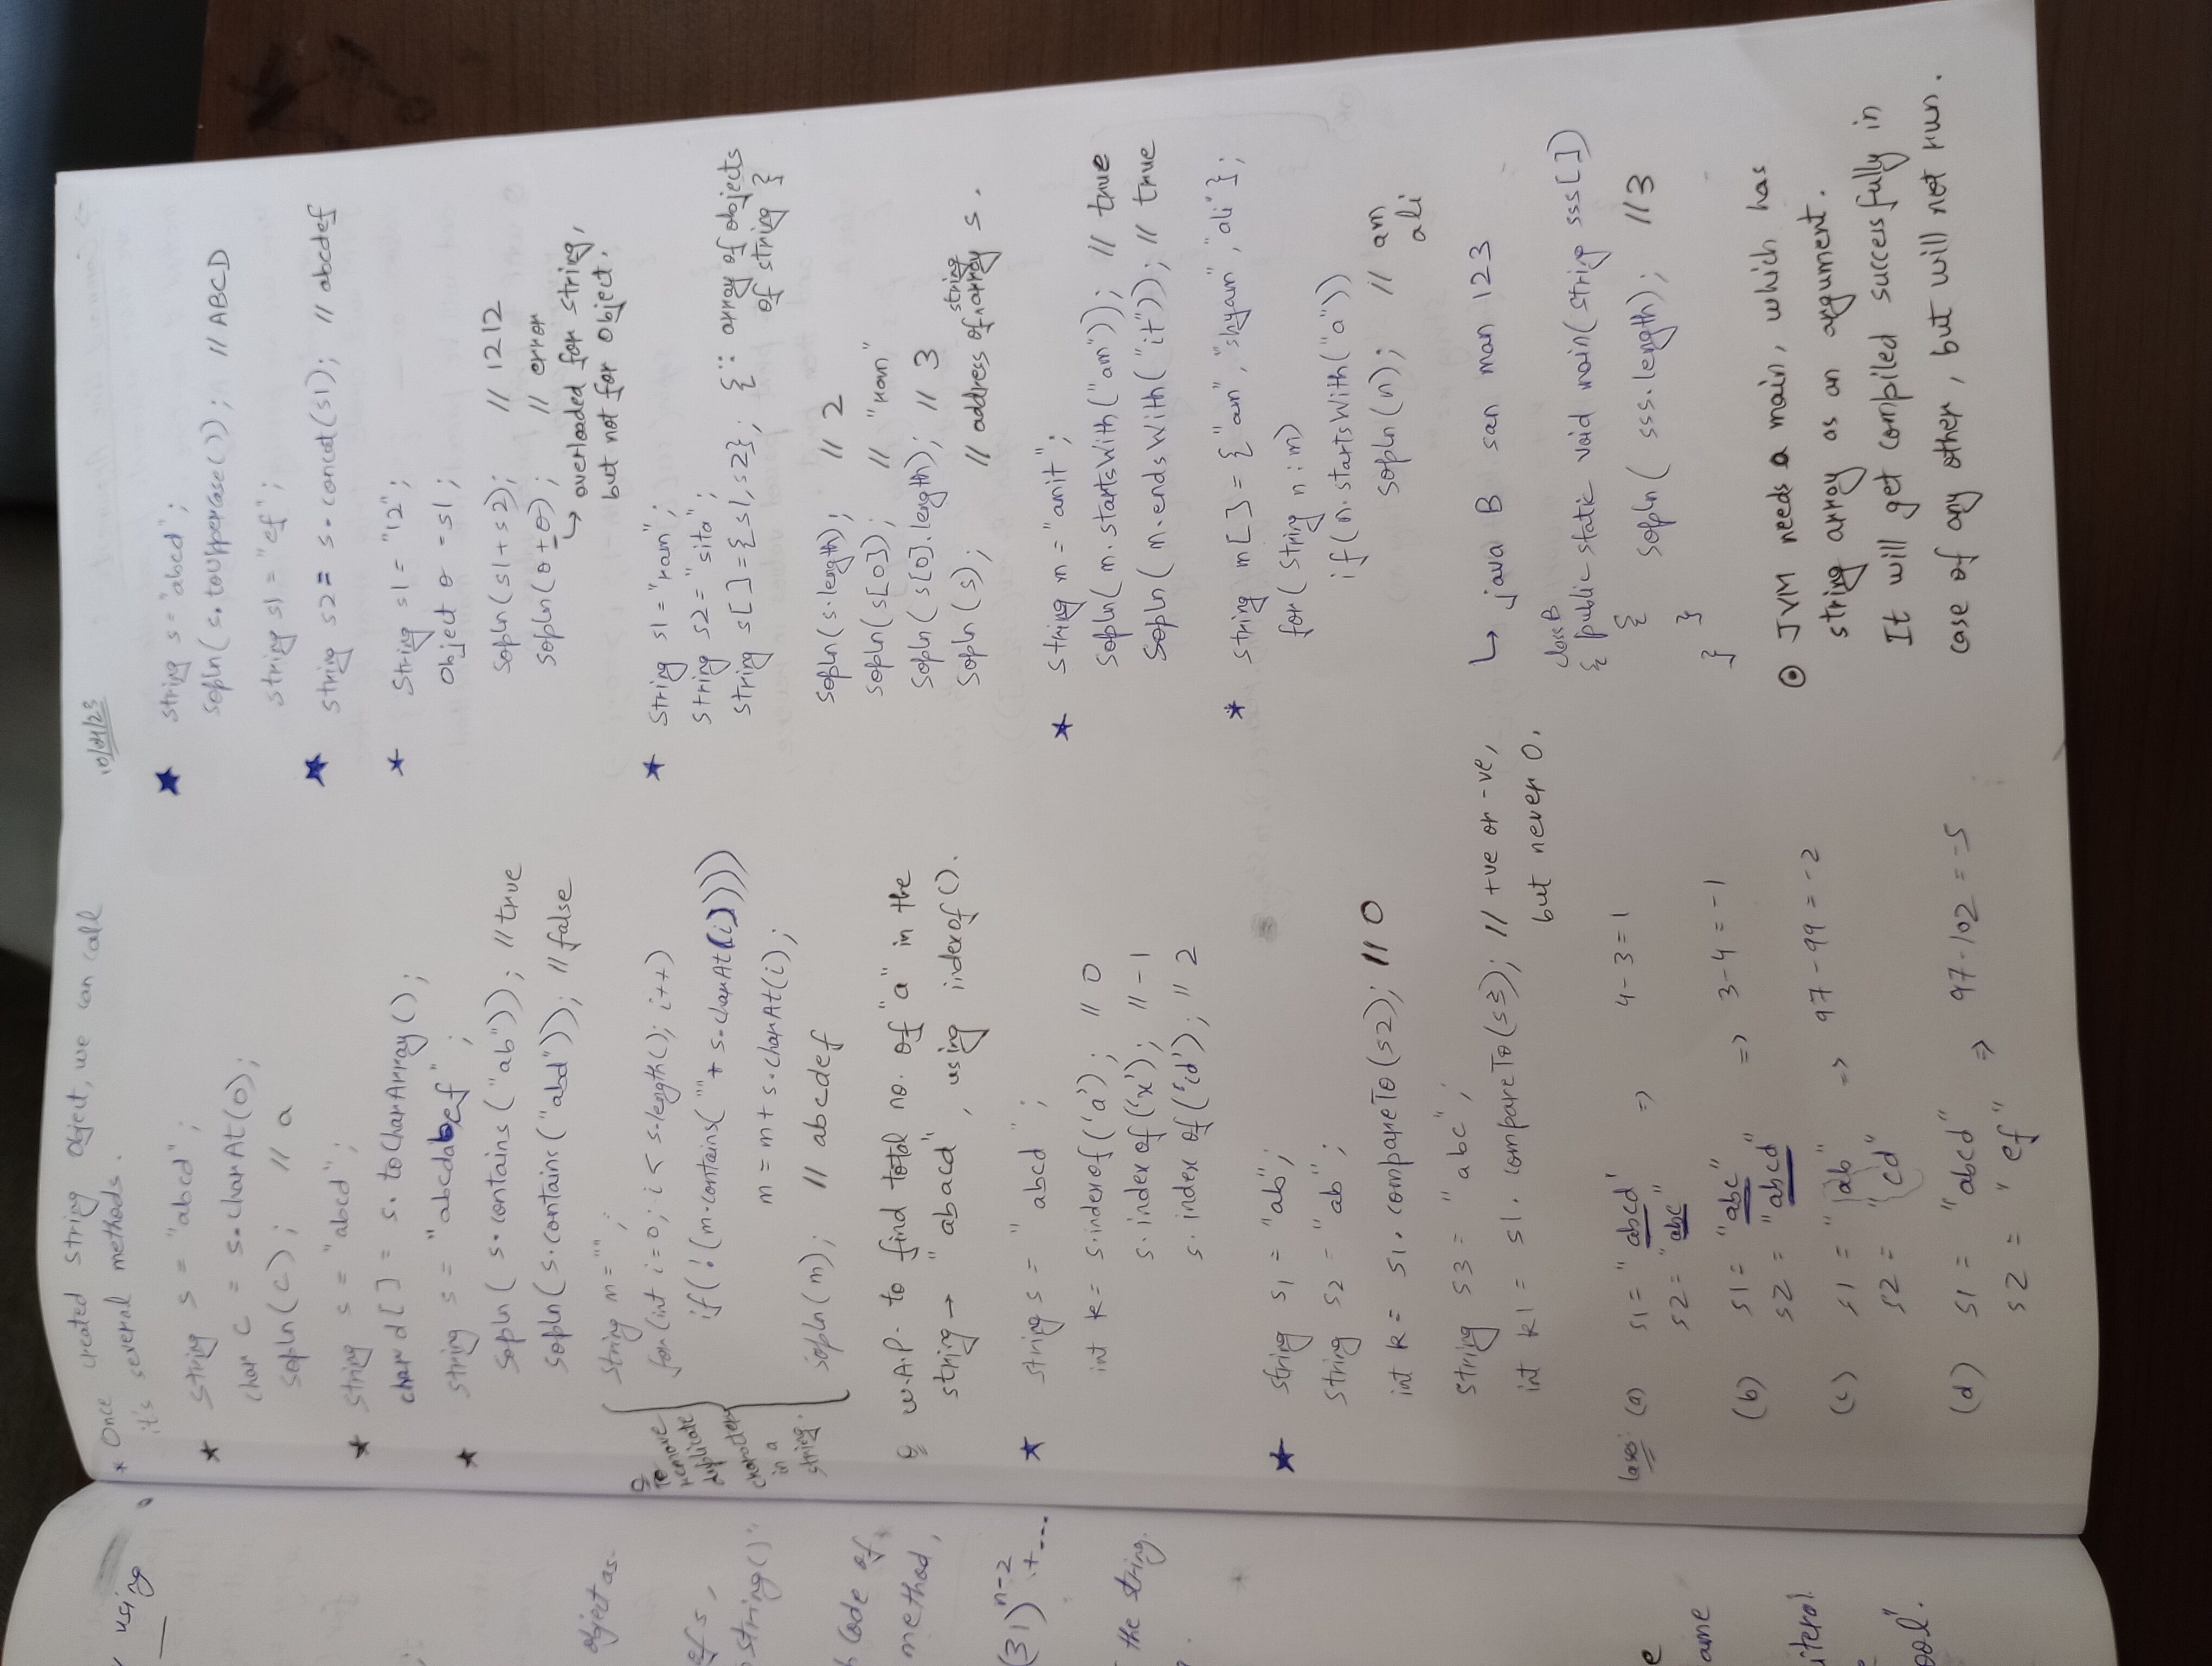 using
object as
ef s,
string()"
Code of
method,
(31)^n-2 + ...
the string.
e
ame
iteral
ool".
* Once created string object, we can call
it's several methods.
★ string s = "abcd";
char c = s.charAt(0);
sopln(c); // a
★ string s = "abcd";
char d[] = s.toCharArray();
★ string s = "abcdabef";
sopln(s.contains("ab")); // true
sopln(s.contains("abd")); // false
Q To
remove
duplicate
characters
in a
string.
string m = "";
for(int i=0; i < s.length(); i++)
if(!(m.contains(""+ s.charAt(i))))
m = m + s.charAt(i);
sopln(m); // abcdef
Q W.A.P. to find total no. of "a" in the
string → "abacd", using indexof().
★ string s = "abcd";
int k = s.indexof('a'); // 0
s.index of('x'); // -1
s.index of('cd'); // 2
★ string s1 = "ab";
string s2 = "ab";
int k = s1.compareTo(s2); // 0
string s3 = "abc";
int k1 = s1.compareTo(s3); // +ve or -ve,
but never 0.
Cases: (a) s1 = "abcd' => 4-3=1
s2 = "abc"
(b) s1 = "abc" => 3-4 = -1
s2 = "abcd"
(c) s1 = "ab" => 97-99 = -2
s2 = "cd"
(d) s1 = "abcd" => 97-102 = -5
s2 = "ef"
10/04/23
★ string s = "abcd";
sopln(s.toUppercase()); // ABCD
string s1 = "ef";
★ string s2 = s.concat(s1); // abcdef
★ String s1 = "12";
Object o = s1;
sopln(s1+s2); // 1212
sopln(o+o); // error
↳ overloaded for string,
but not for object.
★ String s1 = "ram";
string s2 = "sita";
string s[] = {s1,s2}; {∵ array of objects
of string }
sopln(s.length); // 2
sopln(s[0]); // "ram"
sopln(s[0].length); // 3
sopln(s); // address of string array s.
★ string m = "amit";
sopln(m.startsWith("am")); // true
sopln(m.endsWith("it")); // true
* string m[] = {"am", "shyam", "ali"};
for(String n : m)
if(n.startsWith("a"))
sopln(n); // am
ali
↳ java B san man 123
class B
{ public static void main(string sss[])
{ sopln(sss.length); // 3
}
}
⊙ JVM needs a main, which has
string array as an argument.
It will get compiled successfully in
case of any other, but will not run.